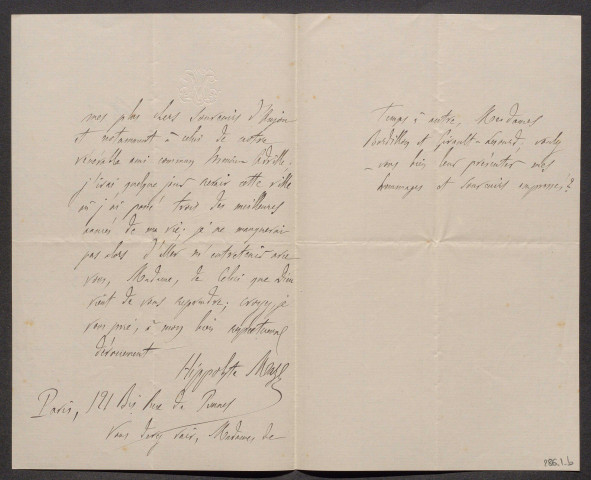 mes plus chers souvenirs d'Anjou
et notamment à celui de notre
vénérable ami commun
j'irai quelque jour revoir cette ville
où j'ai passé trois des meilleures
années de ma vie; je ne manquerai
pas alors d'aller m'entretenir avec
vous, Madame, de celui que Dieu
vient de vous reprendre; croyez, je
vous prie, à mon bien respectueux
dévouement
Hippolyte Maze
Paris, 121 Bis Rue de Rennes
Vous devez voir, Madame, de
Temps à autre, Mesdames
Bordillon et Girault-; voulez
-vous bien leur présenter mes
hommages et souvenirs empressés?
286.1.b